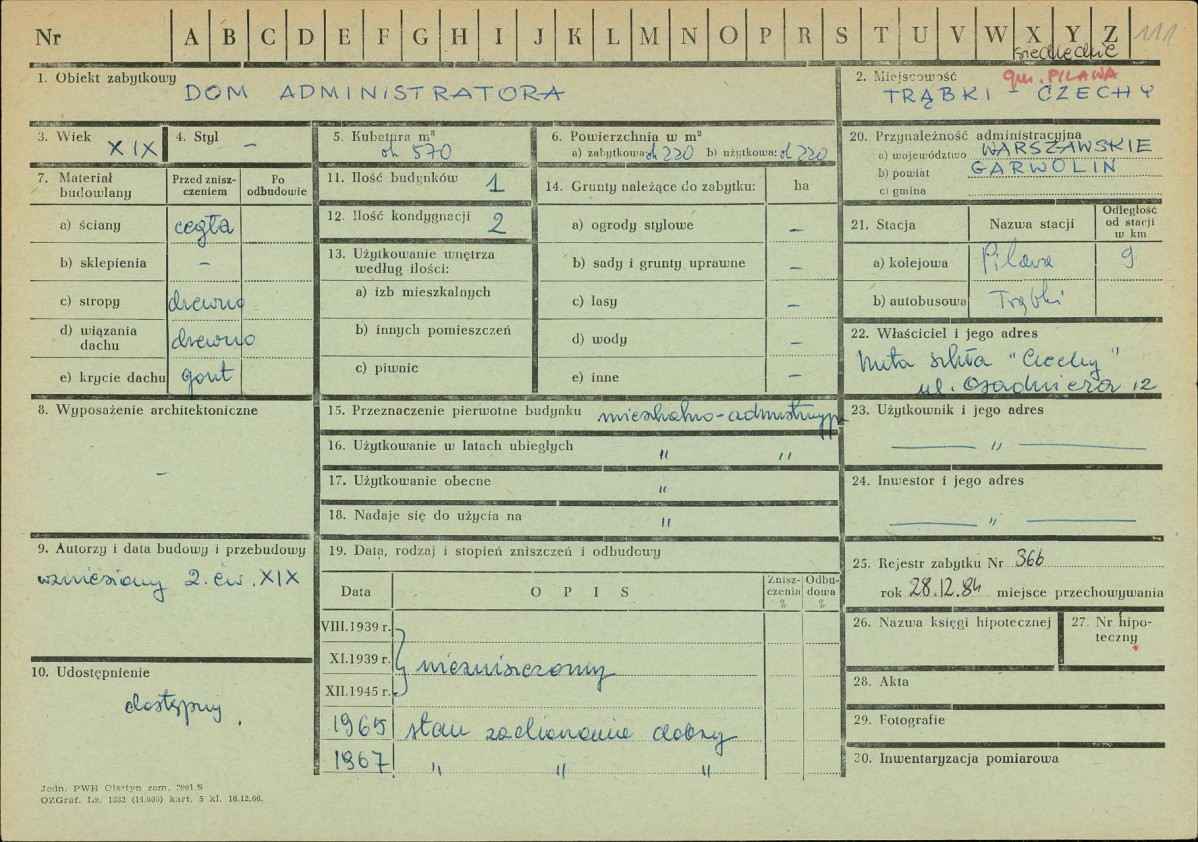 Nr A B C D E F G H I J K L M N O P R S T U V W X Y Z 111
siedleckie
1. Obiekt zabytkowy
DOM ADMINISTRATORA
2. Miejscowość gm. PILAWA
TRĄBKI - CZECHY
3. Wiek XIX
4. Styl -
5. Kubatura m³
ok 570
6. Powierzchnia w m²
a) zabytkowa: ok 220 b) użytkowa: ok 220
20. Przynależność administracyjna
a) województwo WARSZAWSKIE
b) powiat GARWOLIN
c) gmina
7. Materiał budowlany
Przed znisz-
czeniem
Po
odbudowie
a) ściany cegła
b) sklepienia -
c) stropy drewno
d) wiązania
dachu drewno
e) krycie dachu gont
11. Ilość budynków 1
12. Ilość kondygnacji 2
13. Użytkowanie wnętrza
według ilości:
a) izb mieszkalnych
b) innych pomieszczeń
c) piwnic
14. Grunty należące do zabytku: ha
a) ogrody stylowe -
b) sady i grunty uprawne -
c) lasy -
d) wody -
e) inne -
21. Stacja Nazwa stacji
Odległość
od stacji
w km
a) kolejowa Pilawa 9
b) autobusowa Trąbki
22. Właściciel i jego adres
Huta szkła "Czechy"
ul. Osadnicza 12
23. Użytkownik i jego adres
— " —
24. Inwestor i jego adres
— " —
8. Wyposażenie architektoniczne
-
15. Przeznaczenie pierwotne budynku mieszkalno-administracyjne
16. Użytkowanie w latach ubiegłych " "
17. Użytkowanie obecne "
18. Nadaje się do użycia na "
9. Autorzy i data budowy i przebudowy
wzniesiony 2. ćw. XIX
10. Udostępnienie
dostępny.
19. Data, rodzaj i stopień zniszczeń i odbudowy
Data O P I S
Znisz-
czenia
%
Odbu-
dowa
%
VIII.1939 r.
XI.1939 r. niezniszczony
XII.1945 r.
1965 stan zachowania dobry
1967 " " "
25. Rejestr zabytku Nr 366
rok 28.12.84 miejsce przechowywania
26. Nazwa księgi hipotecznej
27. Nr hipo-
teczny
28. Akta
29. Fotografie
30. Inwentaryzacja pomiarowa
Jedn. PWH Olsztyn zam. 2991 S
OZGraf. Lz. 1332 (14.000) kart. 5 kl. 16.12.66.